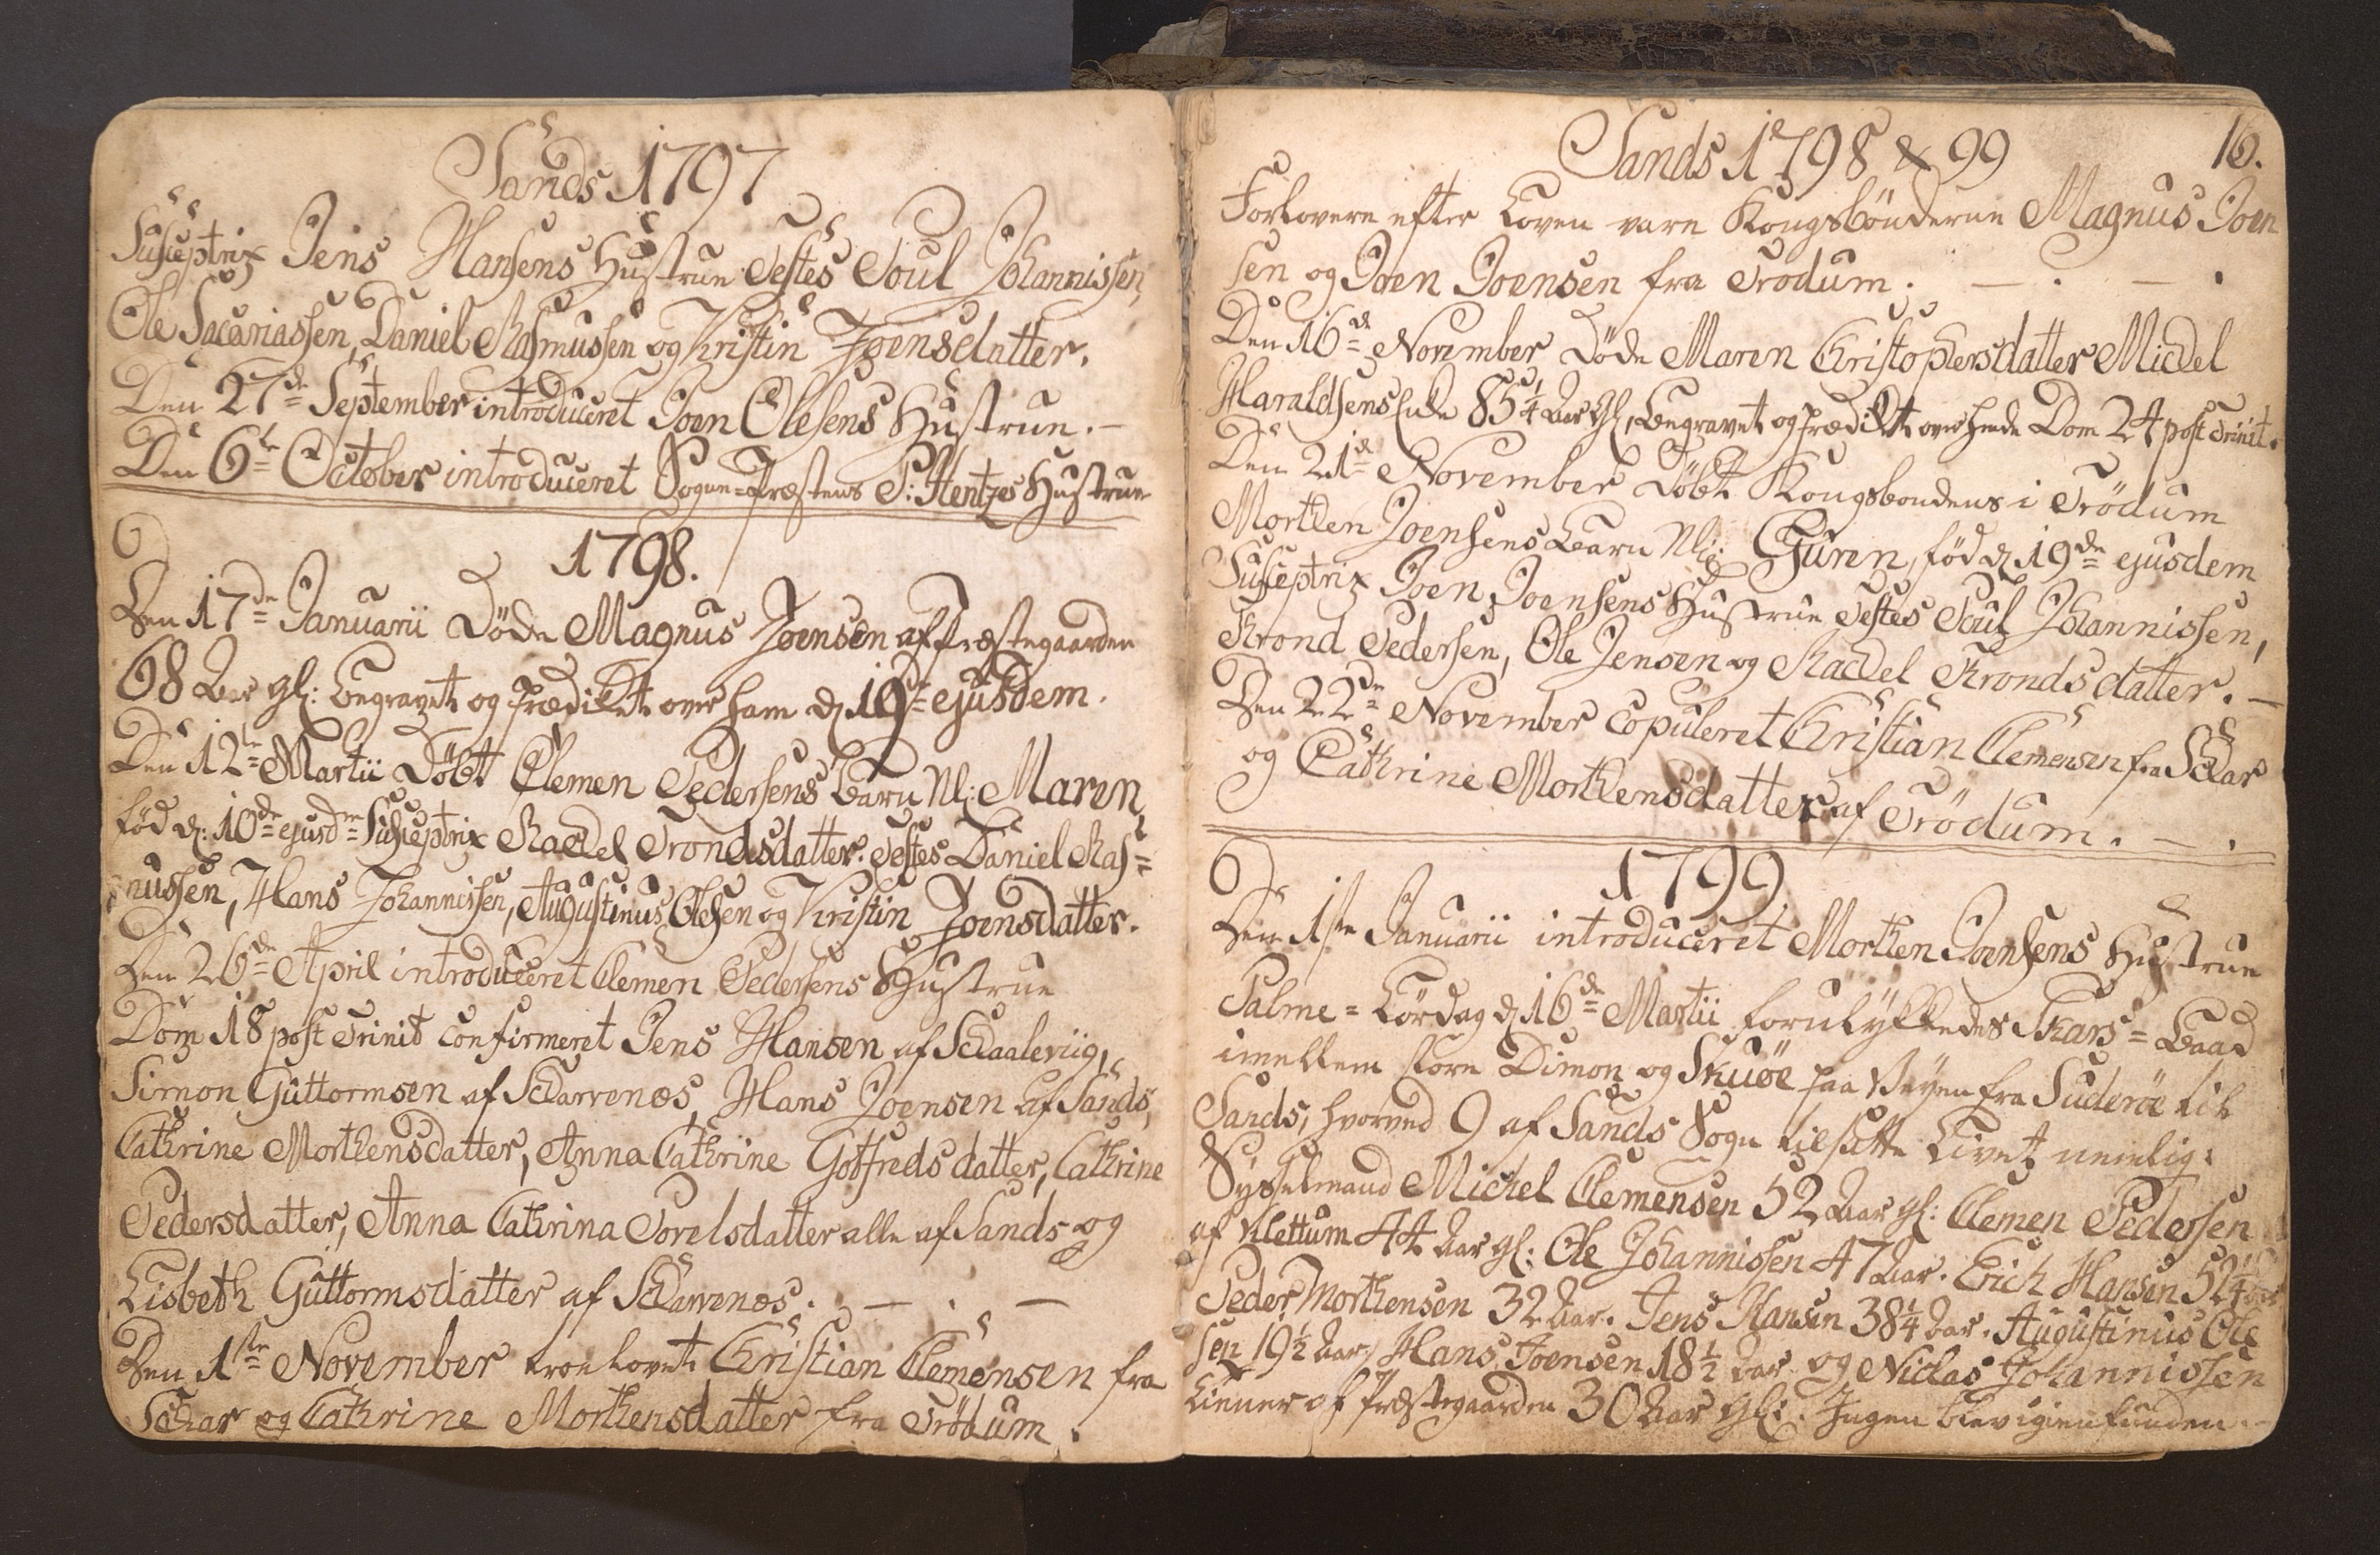 Sands 1797
Susceptrix Jens Hansens Hustrue Testes Poul Johannissen,
Ole Sacariassen, Daniel Rasmussen og Kristin Joensdatter.
Den 27de September introduceret Joen Olesens Hustrue. —
Den 6te October introduceret Sogne-Præstens P: Hentzes Hustrue
1798.
Den 17de Januarii Döde Magnus Joensen af Præstegaarden
68 Aar gl: begravet og Prædiket over ham d. 19de ejusdem.
Den 12te Martii Döbt Clemen Pedersens Barn Nl: Maren,
föd d: 10de ejusdm Susceptrix Rachel Trondsdatter. Testes Daniel Ras=
mussen, Hans Johannissen, Augustinus Olesen og Kristin Joensdatter.
Den 26de April introduceret Clemen Pedersens Hustrue
Dom 18 post Trinit confirmeret Jens Hansen af Schaaleviig,
Simon Guttormsen af Scharvenæs, Hans Joensen af Sands,
Cathrine Morthensdatter, Anna Cathrine Gotfredsdatter, Cathrine
Pedersdatter, Anna Cathrina Povelsdatter alle af Sands og
Lisbeth Guttormsdatter af Scharvenæs. — . —
Den 1ste November troelovet Christian Clemensen fra
Schar og Cathrine Morthensdatter fra Trödum.
Sands 1798 & 99
16.
Forlovere efter Loven vare Kongsbönderne Magnus Joen
sen og Joen Joensen fra Trödum. — . — .
Den 16de November Döde Maren Christophersdatter Michel
Haraldsens Enke 85 1/4 Aar gl, Begravet og Prædiket over hende Dom 24 post Trinit.
Den 21de November Döbt Kongsbondens i Trödum
Morthen Joensens Barn Nl: Guren, föd d 19de ejusdem
Susceptrix Joen Joensens Hustrue Testes Poul Johannissen,
Trond Pedersen, Ole Jensen og Rachel Trondsdatter. —
Den 22de November copuleret Christian Clemensen fra Schar
og Cathrine Morthensdatter af Trödum. — .
1799
Den 1ste Januarii introduceret Morthen Joensens Hustrue
Palme=Lördag d 16de Martii forulykkedes Skars=Baad
imellem store Dimon og Skuöe paa Veyen fra Suderöe til
Sands, hvorved 9 af Sands Sogn tilsatte Livet nemlig:
Sysselmand Michel Clemensen 52 Aar gl: Clemen Pedersen
af Klettum 44 Aar gl: Ole Johannissen 47 Aar. Erich Hansen 52 1/4 Aar
Peder Morthensen 32 Aar. Jens Hansen 38 1/4 Aar. Augustinus Ole
sen 19 1/2 Aar, Hans Joensen 18 1/2 Aar og Niclas Johannissen
tiener af Præstegaarden 30 Aar gl:. Ingen blev igienfunden. —